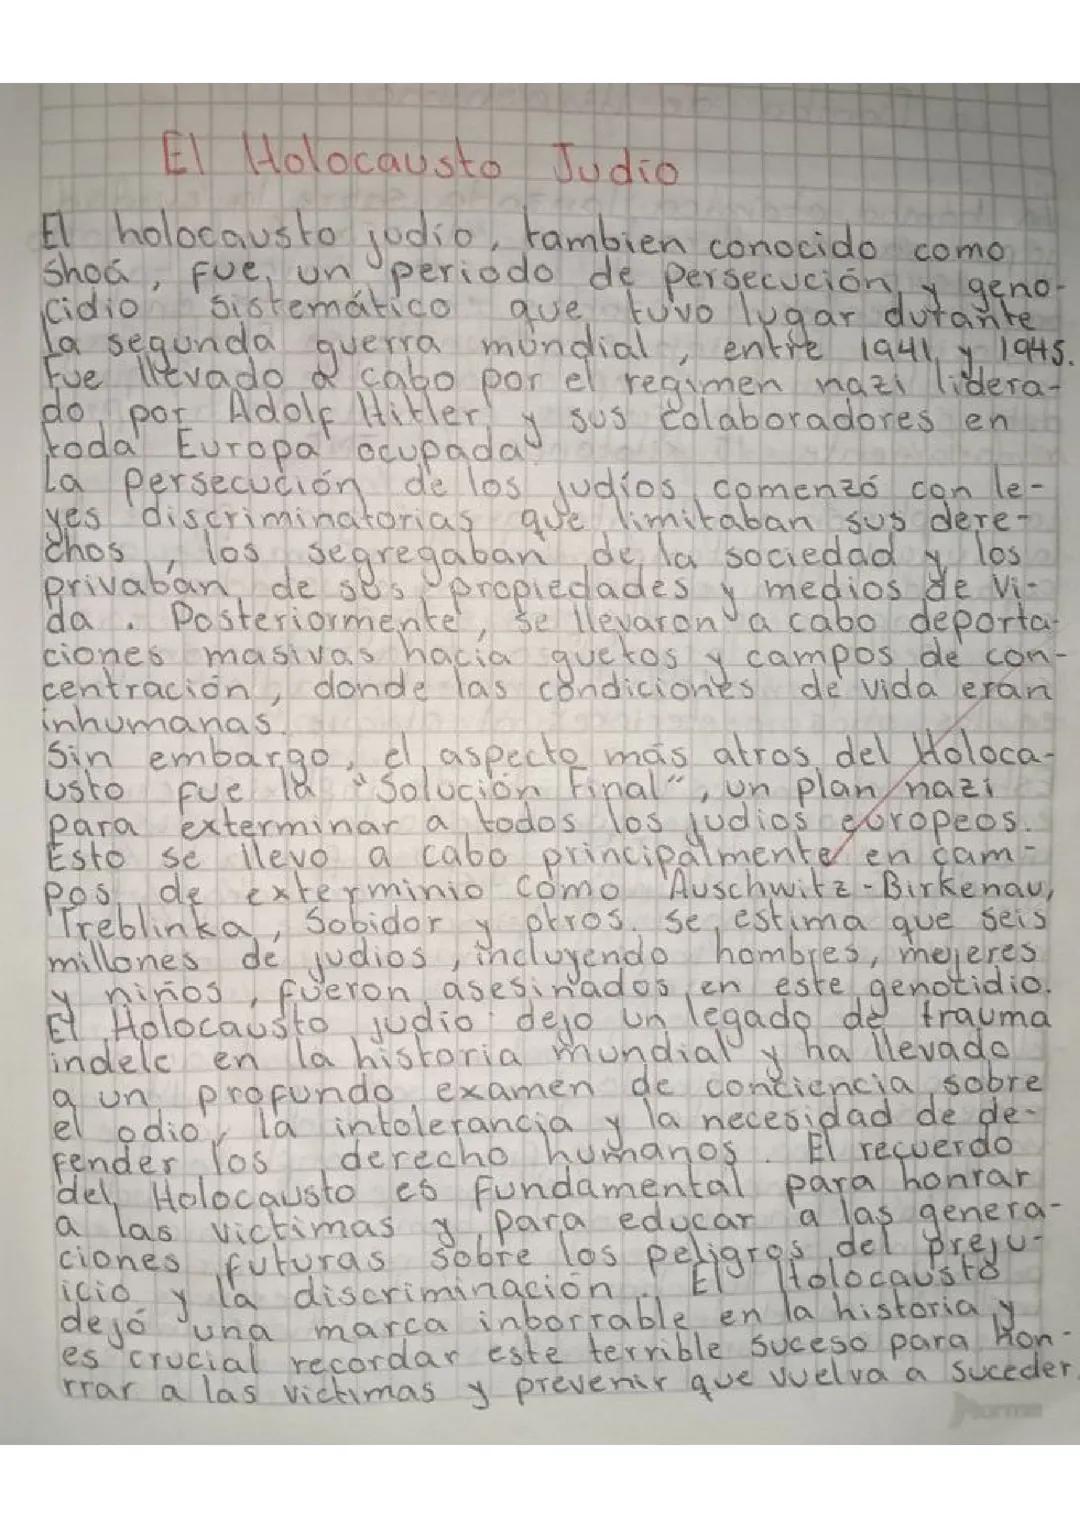 El Holocausto Judio
El holocausto judio, tambien conocido como
Shoá, fue, un periodo de persecución y geno-
cidio sistemático que tuvo lugar durante
la segunda guerra mundial, entre 1941 y 1945.
Fue llevado a cabo por el regimen nazi lidera-
do por Adolf Hitler y sus colaboradores en
toda Europa ocupada
La persecución de los judíos comenzó con le-
yes discriminatorias que limitaban sus dere-
chos, los segregaban de la sociedad y los
privaban de sus propiedades y medios de vi-
da. Posteriormente, se llevaron a cabo deporta-
ciones masivas hacia guetos y campos de con-
centración, donde las condiciones de vida eran
inhumanas.
Sin embargo, el aspecto más atros del Holoca-
usto fue la "Solución Final", un plan nazi
para exterminar a todos los judios europeos.
Esto se llevo a cabo principalmente en cam-
pos de exterminio como Auschwitz-Birkenau,
Treblinka, Sobidor y otros. Se estima que seis
millones de judios, incluyendo hombres, mejeres
y niños, fueron asesinados en este genocidio.
El Holocausto judio dejo un legado de trauma
indele en la historia mundial y ha llevado
a un profundo examen de conciencia sobre
el odio, la intolerancia y la necesidad de de-
fender los derecho humanos. El recuerdo
del Holocausto es fundamental para honrar
a las victimas y para educar a las genera-
ciones futuras sobre los peligros del preju-
icio y la discriminación. El Holocausto
dejó una marca inborrable en la historia y
es crucial recordar este terrible suceso para hon-
rrar a las victimas y prevenir que vuelva a suceder.
Norma